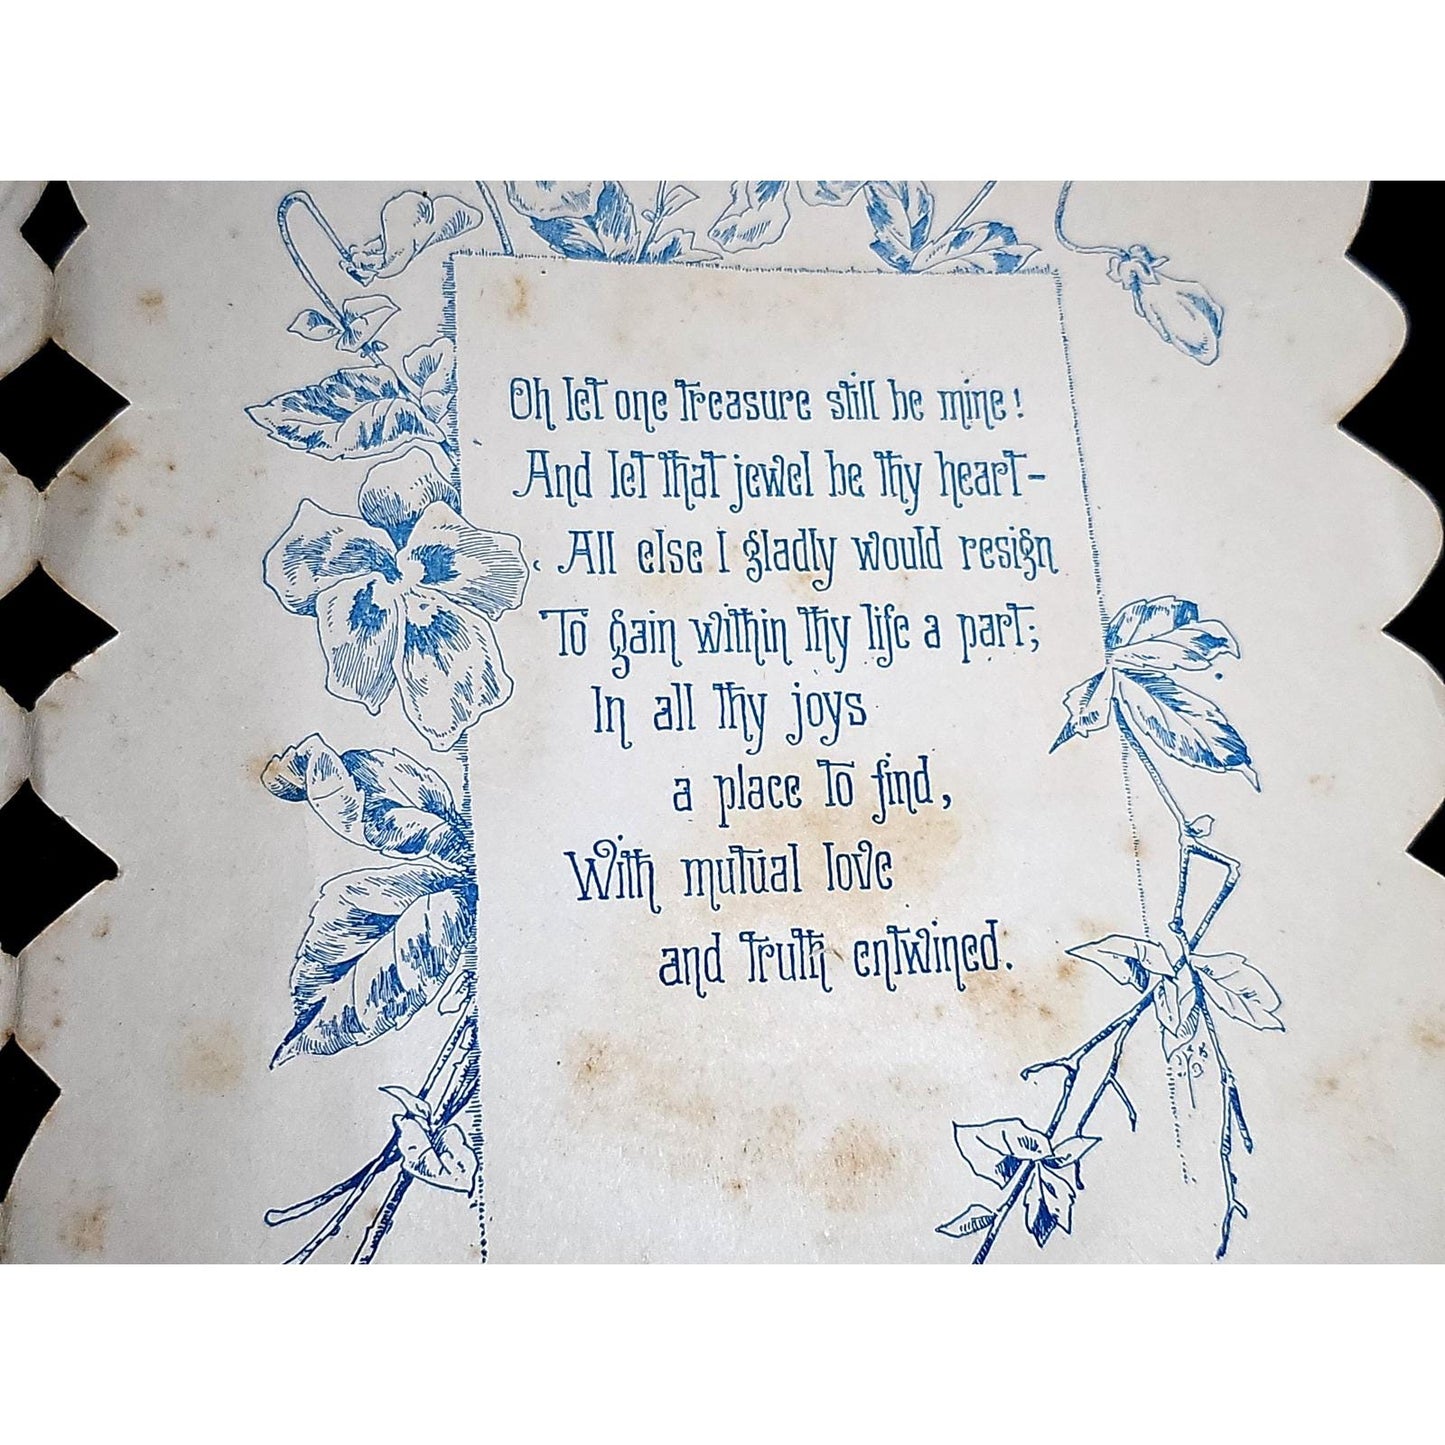 Oh let one treasure still be mine!
And let that jewel be thy heart-
All else I gladly would resign
To gain within thy life a part;
In all thy joys
a place to find,
With mutual love
and truth entwined.